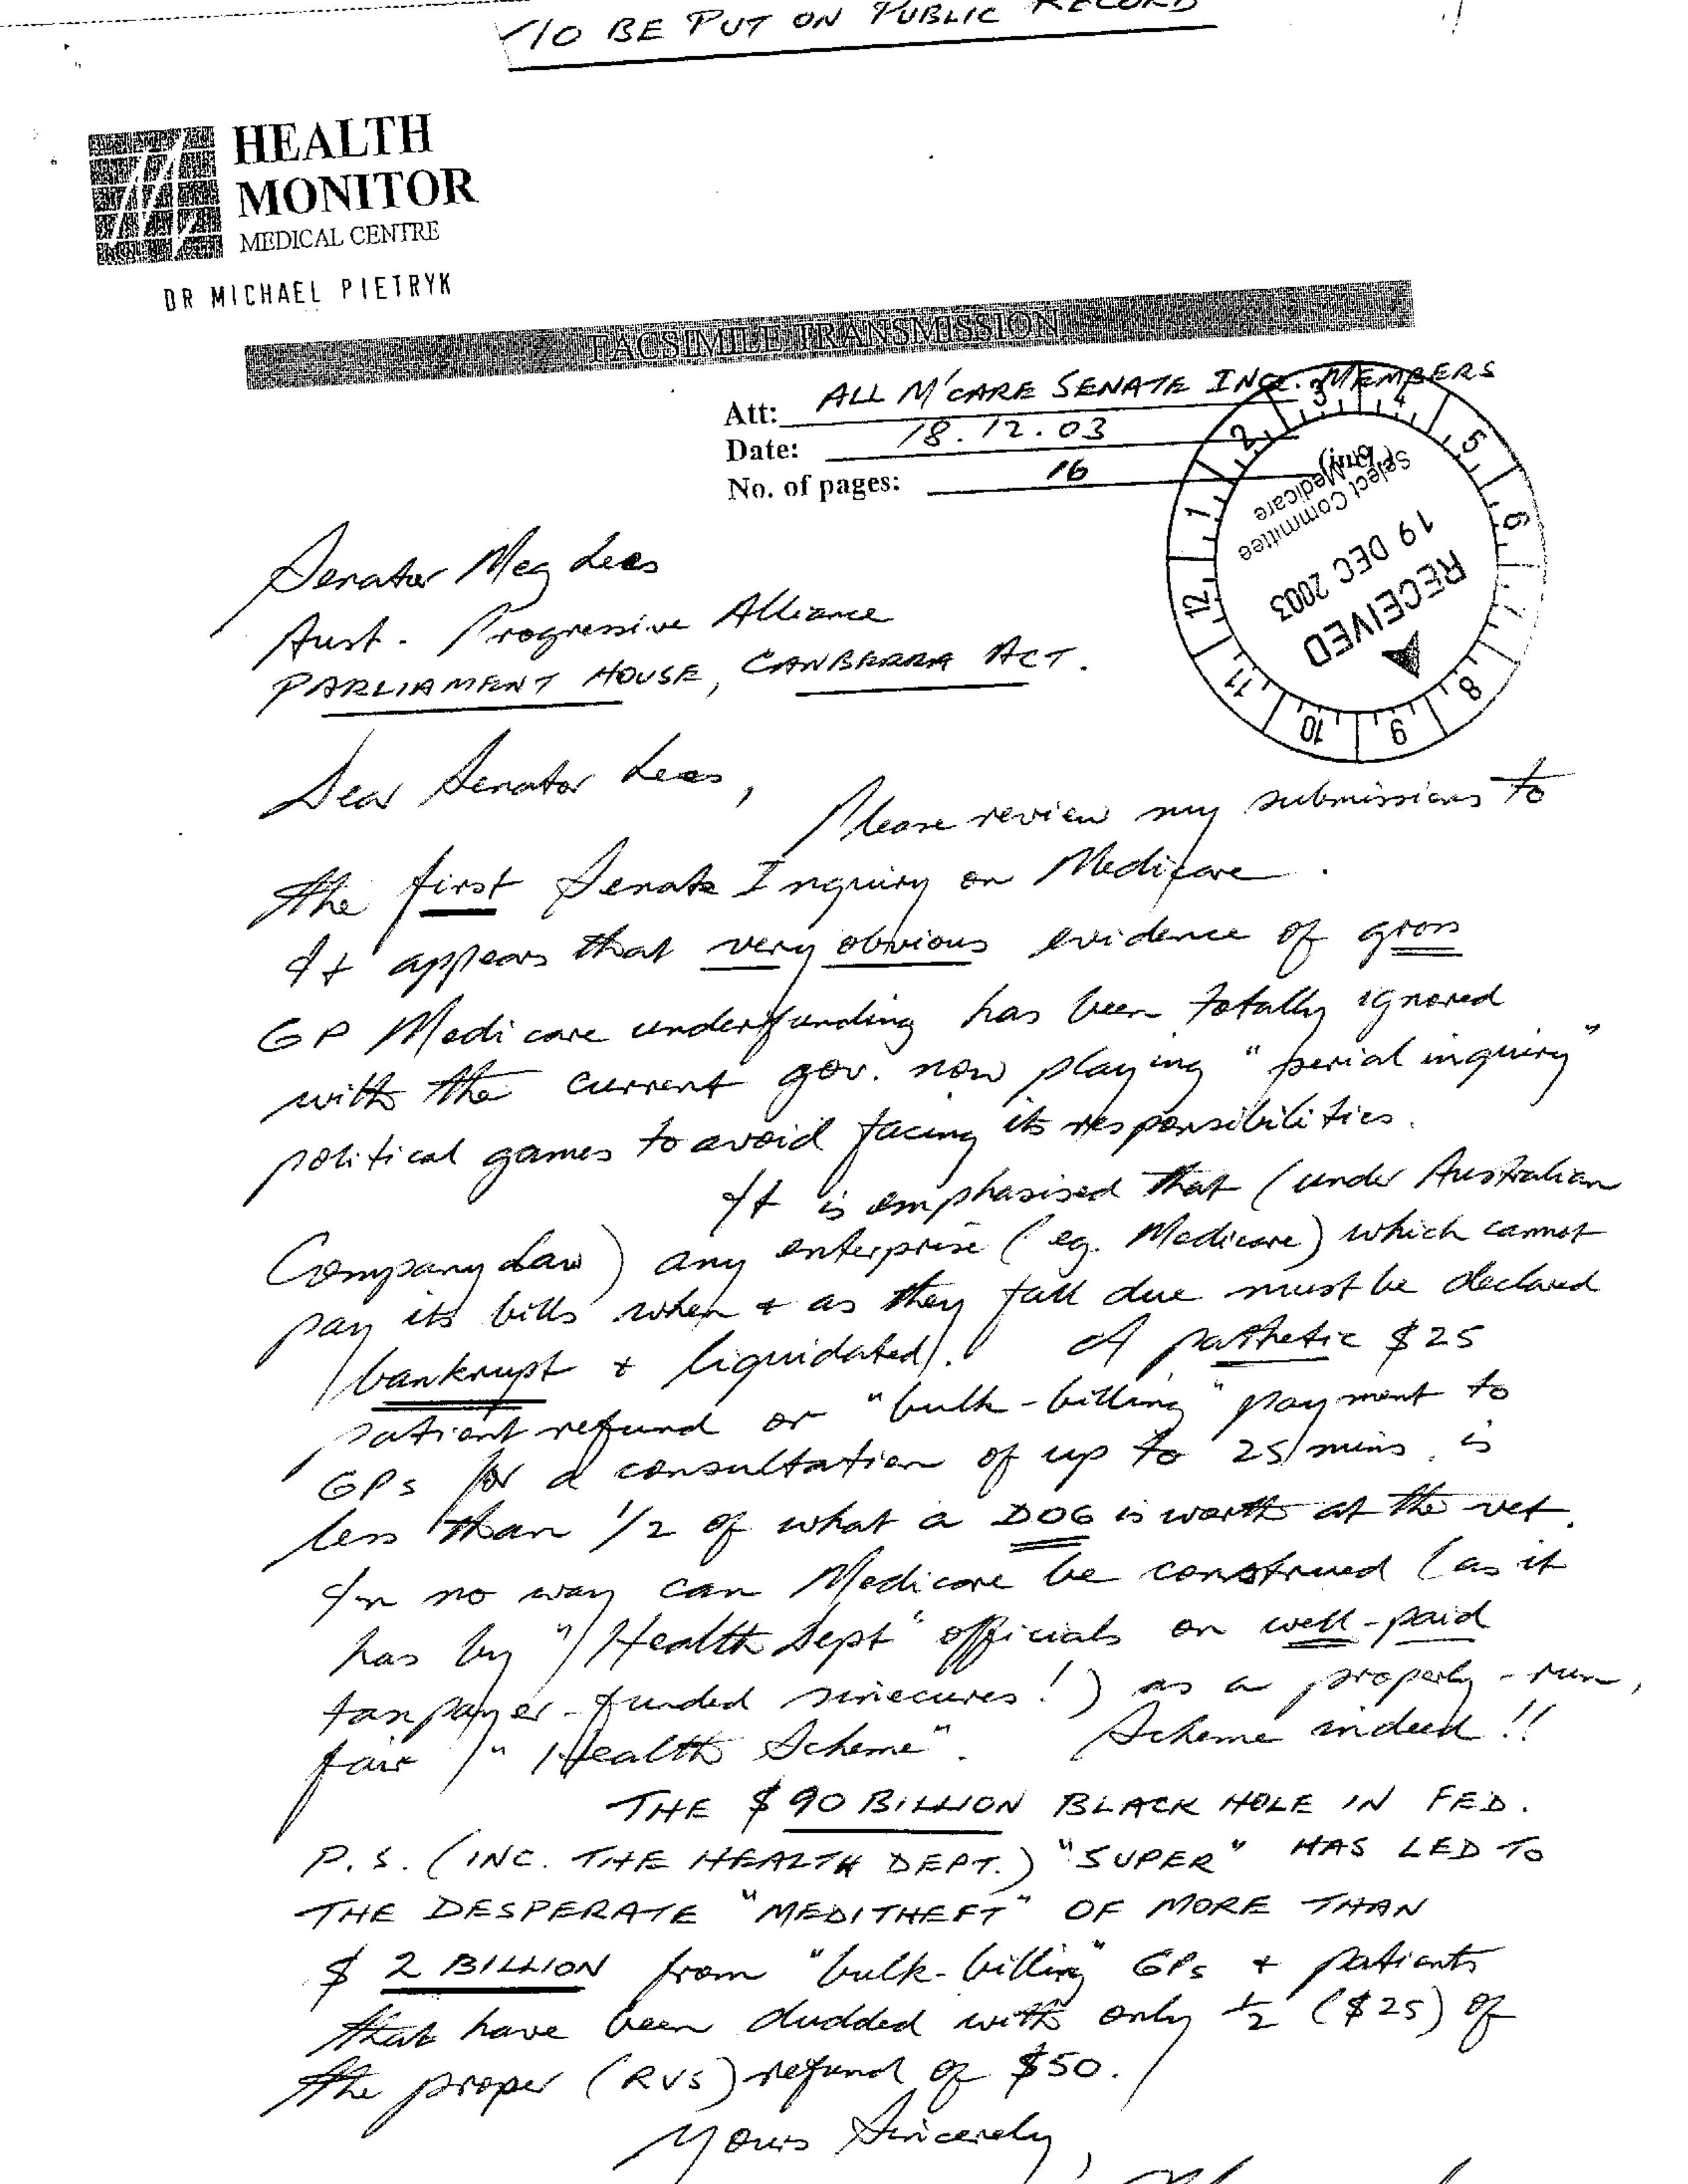 TO BE PUT ON PUBLIC RECORD
HEALTH
MONITOR
MEDICAL CENTRE
DR MICHAEL PIETRYK
FACSIMILE TRANSMISSION
Att: ALL M'CARE SENATE INQ. MEMBERS
Date: 18.12.03
No. of pages: 16
Select Committee
Medicare
19 DEC 2003
RECEIVED
1 2 3 4 5 6 7 8 9 10 11 12
Senator Meg Lees
Aust. Progressive Alliance
PARLIAMENT HOUSE, CANBERRA ACT.
Dear Senator Lees,
Please review my submissions to
the first Senate Inquiry on Medicare.
It appears that very obvious evidence of gross
GP Medicare underfunding has been totally ignored
with the current gov. now playing "serial inquiry"
political games to avoid facing its responsibilities.
It is emphasised that (under Australian
Company Law) any enterprise (eg. Medicare) which cannot
pay its bills when & as they fall due must be declared
bankrupt & liquidated). A pathetic $25
patient refund or "bulk-billing" payment to
GPs for a consultation of up to 25 mins. is
less than 1/2 of what a DOG is worth at the vet.
In no way can Medicare be construed (as it
has by "Health Dept" officials on well-paid
taxpayer-funded sinecures!) as a properly-run,
fair "Health Scheme". Scheme indeed!!
THE $90 BILLION BLACK HOLE IN FED.
P.S. (INC. THE HEALTH DEPT.) "SUPER" HAS LED TO
THE DESPERATE "MEDITHEFT" OF MORE THAN
$2 BILLION from "bulk-billing" GPs & patients
that have been dudded with only 1/2 ($25) of
the proper (RVS) refund of $50.
Yours Sincerely,